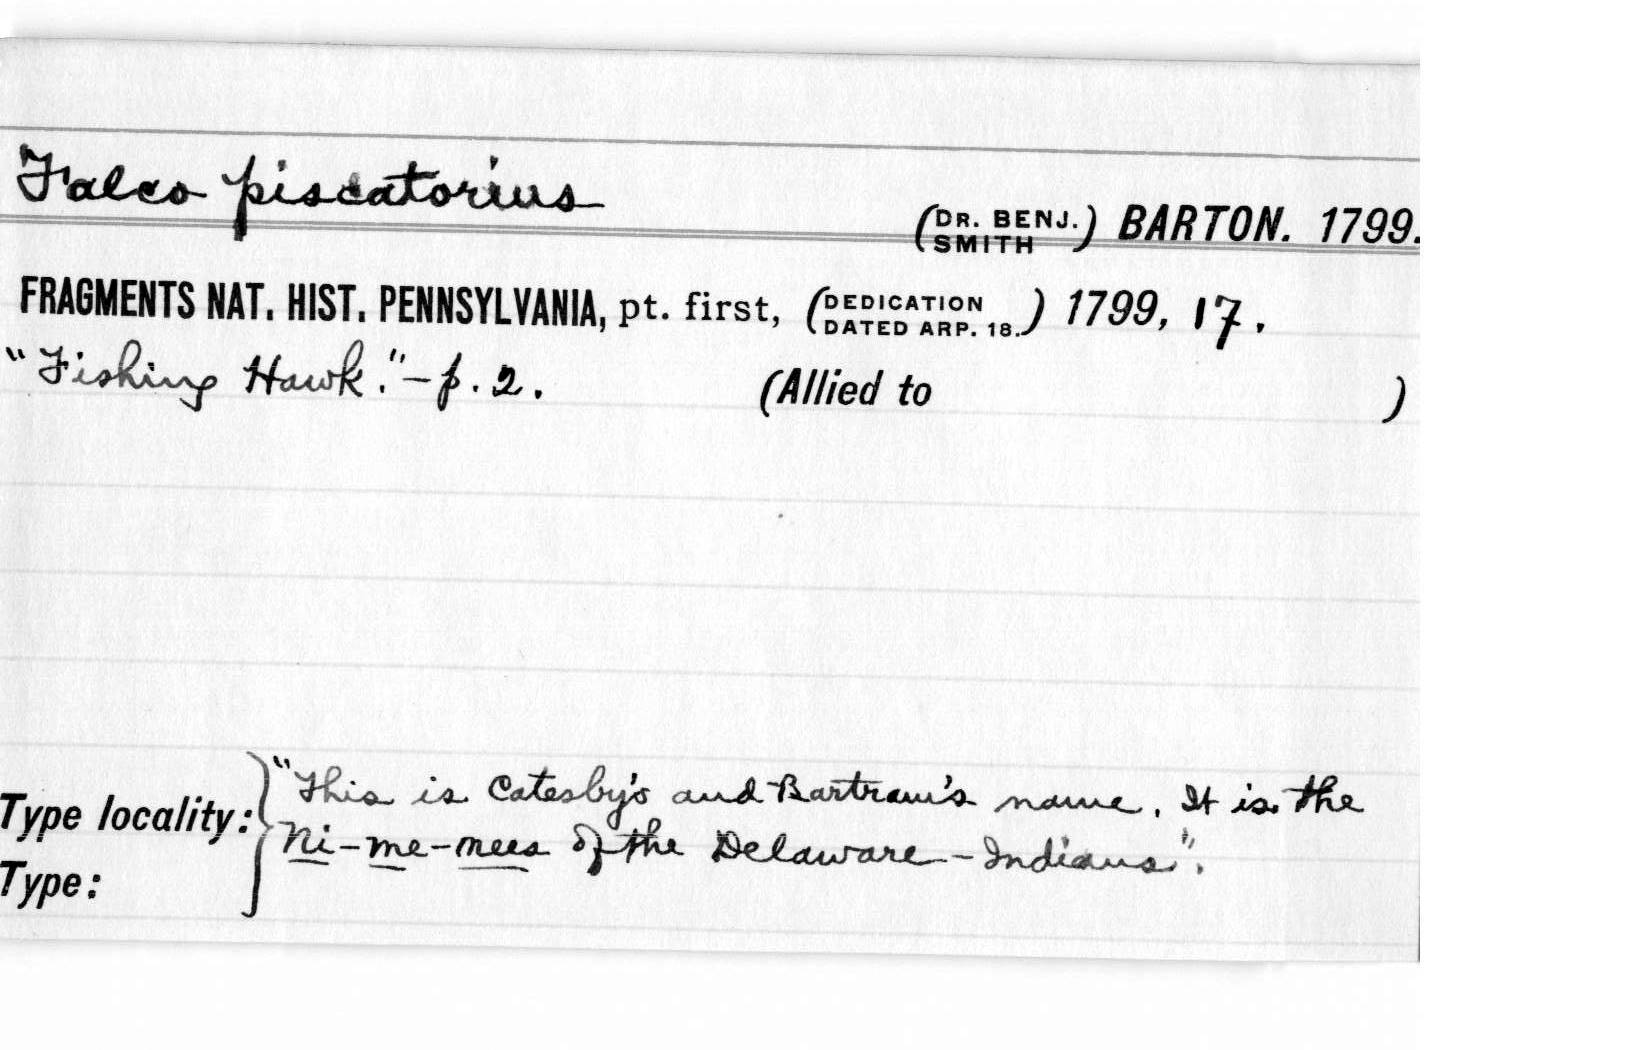 Falco piscatorius
(DR. BENJ. SMITH) BARTON. 1799.
FRAGMENTS NAT. HIST. PENNSYLVANIA, pt. first, (DEDICATION DATED ARP. 18.) 1799, 17.
"Fishing Hawk."-p. 2. (Allied to )
Type locality: "This is Catesby's and Bartram's name. It is the
Ni-me-nees of the Delaware-Indians".
Type: